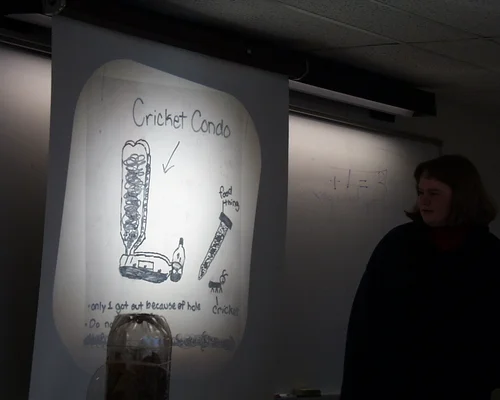 Cricket Condo
food
thing
cricket
• only 1 got out because of hole
• Do no